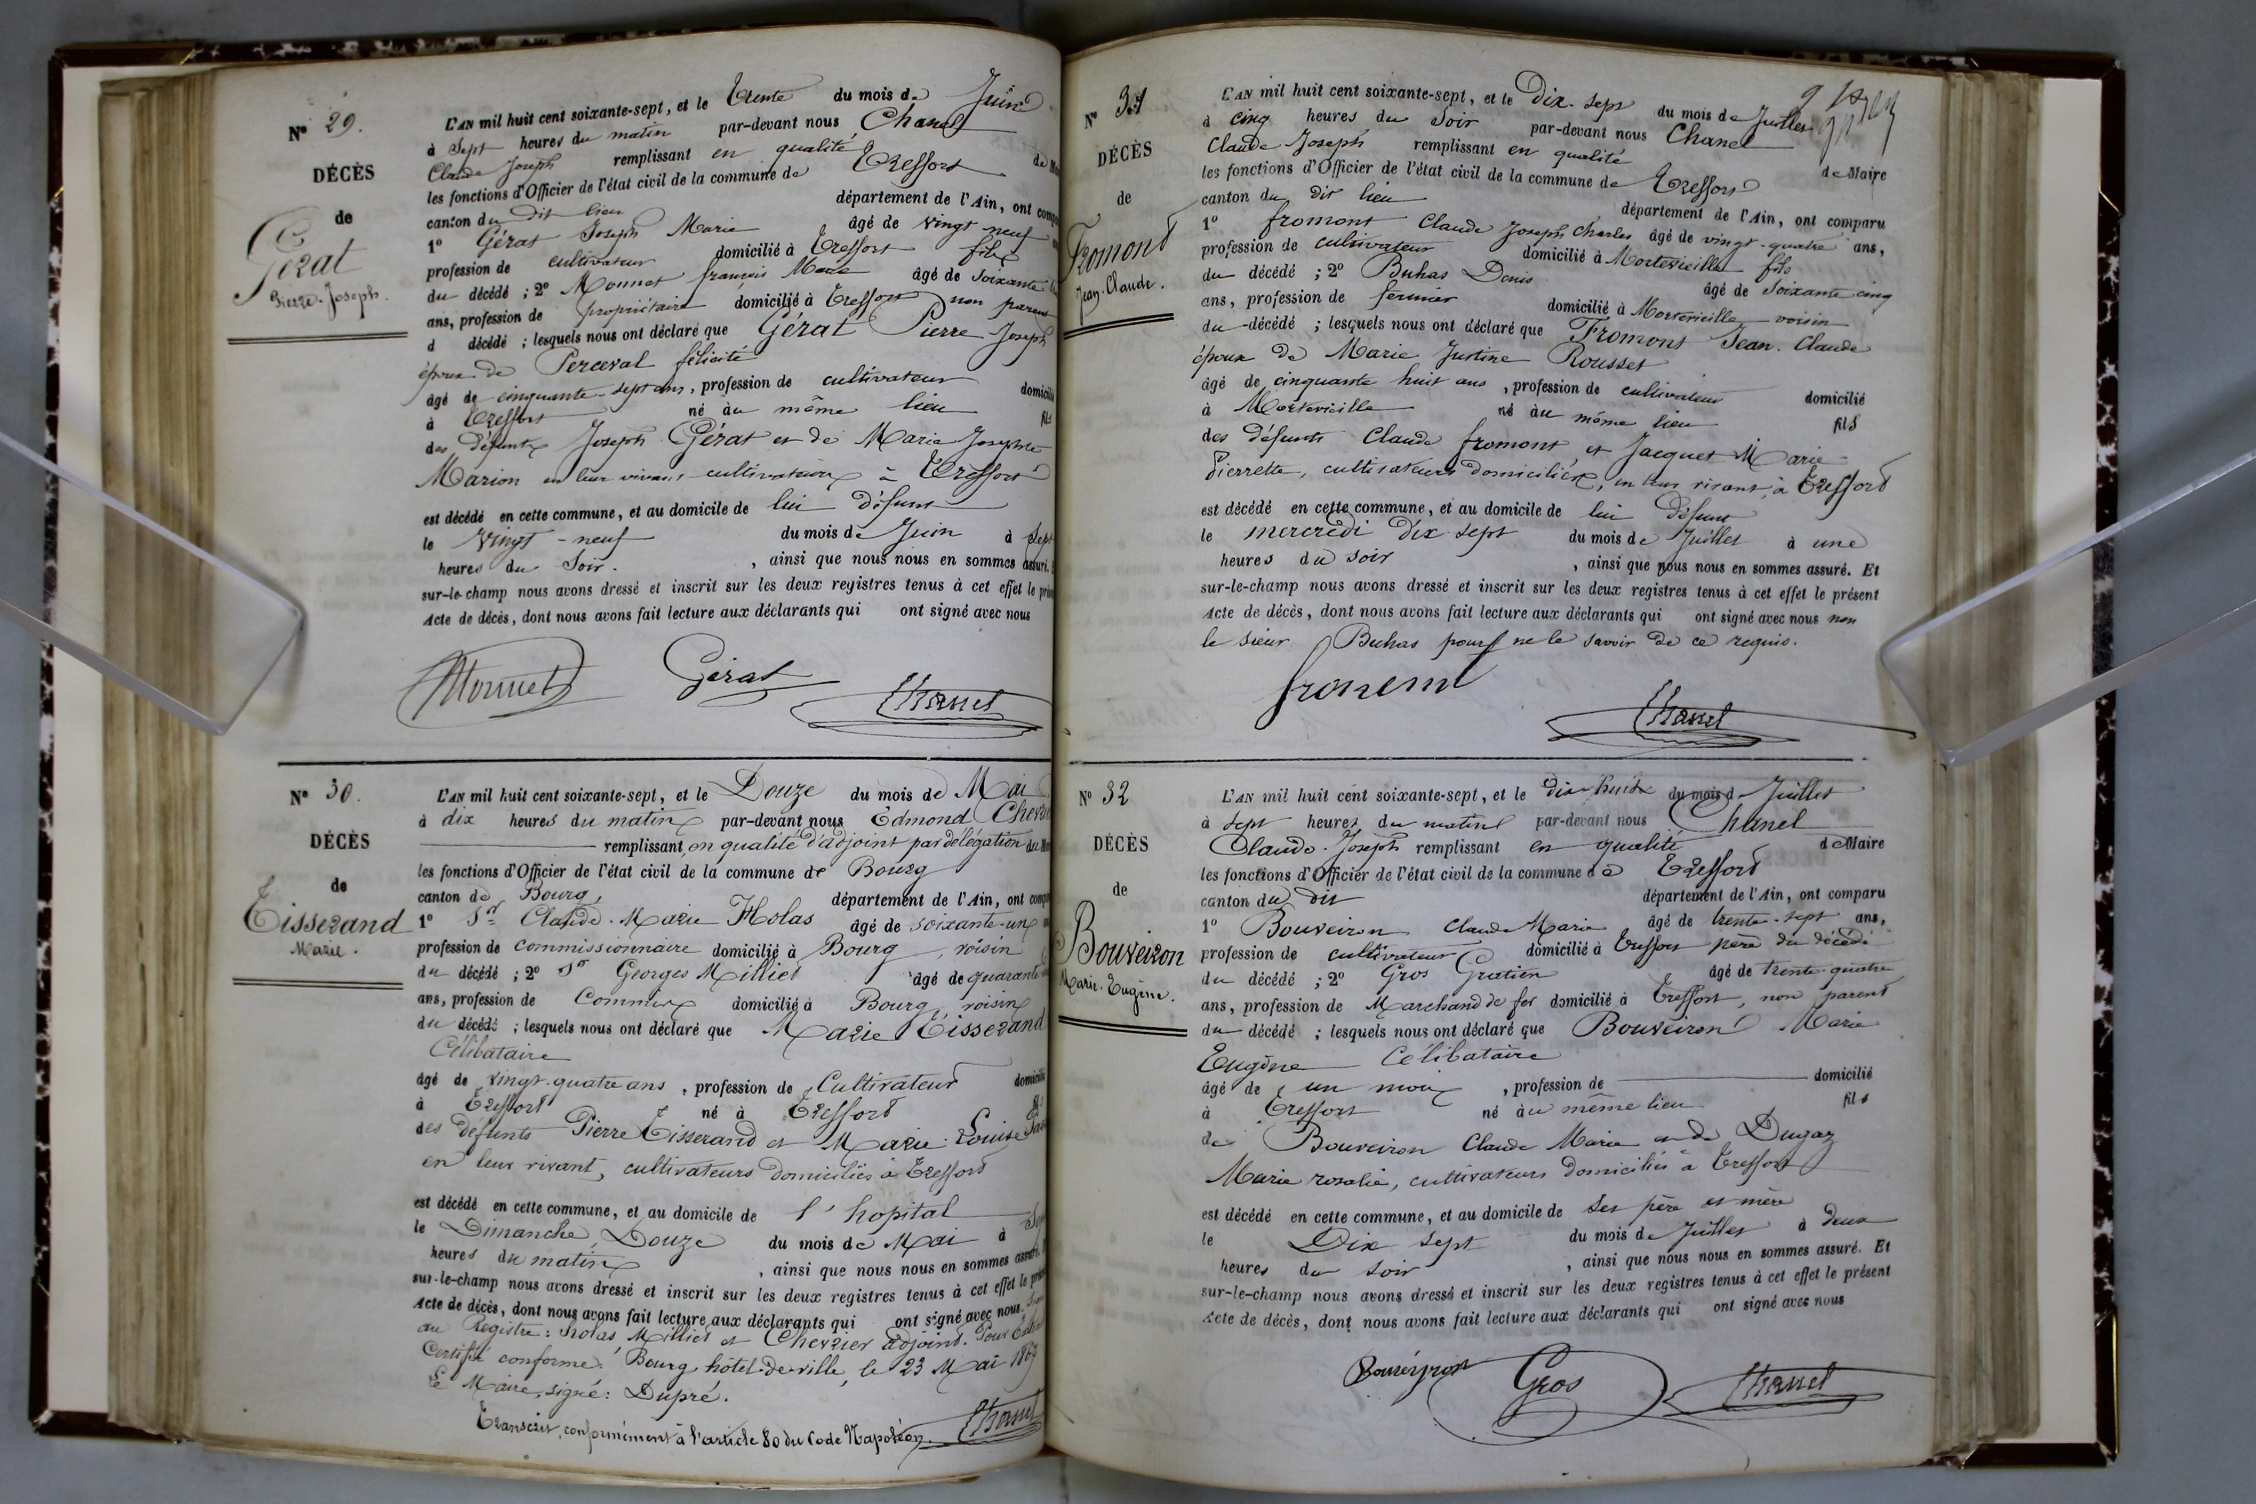 N° 29.
DÉCÈS
de
Gérat
Pierre-Joseph.
L'AN mil huit cent soixante-sept, et le Trente du mois de Juin
à Sept heures du matin par-devant nous Chanel
Claude Joseph remplissant en qualité de
les fonctions d'Officier de l'état civil de la commune de Treffort
canton du dit lieu département de l'Ain, ont
1° Gérat Joseph Marie âgé de vingt neuf
profession de cultivateur domicilié à Treffort fils
du décédé ; 2° Monnet françois Marie âgé de soixante
ans, profession de propriétaire domicilié à Treffort non parent
d décédé ; lesquels nous ont déclaré que Gérat Pierre Joseph
époux de Perceval félicité
âgé de cinquante-sept ans, profession de cultivateur domicilié
à Treffort né au même lieu fils
des défunts Joseph Gérat et de Marie Josephte
Marion en leur vivant cultivateurs à Treffort
est décédé en cette commune, et au domicile de lui défunt
le vingt-neuf du mois de Juin à sept
heures du Soir. , ainsi que nous nous en sommes assuré.
sur-le-champ nous avons dressé et inscrit sur les deux registres tenus à cet effet le
Acte de décès, dont nous avons fait lecture aux déclarants qui ont signé avec nous
Monnet Gérat Chanel
N° 30.
DÉCÈS
de
Tisserand
Marie.
L'AN mil huit cent soixante-sept, et le Douze du mois de Mai
à dix heures du matin par-devant nous Edmond
remplissant en qualité d'adjoint par délégation du
les fonctions d'Officier de l'état civil de la commune de Bourg
canton de Bourg, département de l'Ain, ont
1° Sr Claude-Marie Holas âgé de soixante-un
profession de commissionnaire domicilié à Bourg, voisin
du décédé ; 2° Sr Georges Milliet âgé de quarante
ans, profession de Commis domicilié à Bourg, voisin
du décédé ; lesquels nous ont déclaré que Marie Tisserand
Célibataire
âgé de vingt-quatre ans, profession de Cultivateur domicilié
à Treffort né à Treffort
des défunts Pierre Tisserand et Marie-Louise
en leur vivant, cultivateurs domiciliés à Treffort
est décédé en cette commune, et au domicile de l'hopital
le Dimanche Douze du mois de Mai à
heures du matin , ainsi que nous nous en sommes assuré.
sur-le-champ nous avons dressé et inscrit sur les deux registres tenus à cet effet le
Acte de décès, dont nous avons fait lecture aux déclarants qui ont signé avec nous.
au Registre: Milliet et Chevrier adjoint. Pour
Certifié conforme. Bourg, hôtel-de-ville, le 23 Mai 1867
Le Maire, signé: Dupré.
Transcrit, conformément à l'article 80 du Code Napoléon. Chanel
N° 31
DÉCÈS
de
Fromont
Jean-Claude.
L'AN mil huit cent soixante-sept, et le Dix-sept du mois de Juillet
à cinq heures du soir par-devant nous Chanel
Claude Joseph remplissant en qualité de Maire
les fonctions d'Officier de l'état civil de la commune de Treffort
canton du dit lieu département de l'Ain, ont comparu
1° fromont Claude Joseph Charles âgé de vingt-quatre ans,
profession de cultivateur domicilié à Mortevieille fils
du décédé ; 2° Buhas Denis âgé de Soixante cinq
ans, profession de fermier domicilié à Mortevieille voisin
du décédé ; lesquels nous ont déclaré que Fromont Jean-Claude
époux de Marie Justine Rousset
âgé de cinquante huit ans , profession de cultivateur domicilié
à Mortevieille né au même lieu fils
des défunts Claude fromont et Jacquet Marie
Pierrette, cultivateurs domiciliés, en leur vivant, à Treffort
est décédé en cette commune, et au domicile de lui défunt
le mercredi dix sept du mois de Juillet à une
heures du soir , ainsi que nous nous en sommes assuré. Et
sur-le-champ nous avons dressé et inscrit sur les deux registres tenus à cet effet le présent
Acte de décès, dont nous avons fait lecture aux déclarants qui ont signé avec nous non
le sieur Buhas pour ne le savoir de ce requis.
fromont Chanel
N° 32
DÉCÈS
de
Bouveiron
Marie-Eugène.
L'AN mil huit cent soixante-sept, et le dix huit du mois d Juillet
à sept heures du matin par-devant nous Chanel
Claude-Joseph remplissant en qualité de Maire
les fonctions d'Officier de l'état civil de la commune de Treffort
canton du dit département de l'Ain, ont comparu
1° Bouveiron Claude Marie âgé de trente-sept ans,
profession de cultivateur domicilié à Treffort père du décédé
du décédé ; 2° Gros Gratien âgé de trente-quatre
ans, profession de Marchand de fer domicilié à Treffort, non parent
du décédé ; lesquels nous ont déclaré que Bouveiron Marie
Eugène Célibataire
âgé de un mois , profession de domicilié
à Treffort né au même lieu fils
de Bouveiron Claude Marie et de Dugaz
Marie rosalie, cultivateurs domiciliés à Treffort
est décédé en cette commune, et au domicile de ses père et mère
le Dix sept du mois de Juillet à deux
heures du soir , ainsi que nous nous en sommes assuré. Et
sur-le-champ nous avons dressé et inscrit sur les deux registres tenus à cet effet le présent
Acte de décès, dont nous avons fait lecture aux déclarants qui ont signé avec nous
Bouveyron Gros Chanel